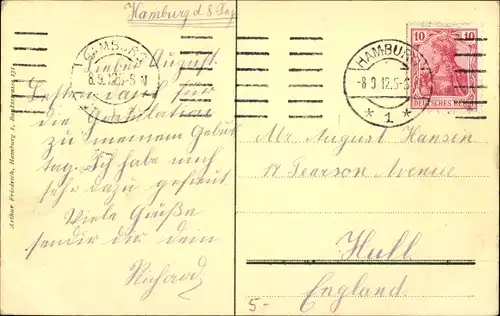 Hamburg d 8 Sep.
HAMBURG
8.9.12.5-6 N
Lieber August
Besten Dank für
die Gratulation
zu meinem Geburts
tag. Ich habe mich
sehr dazu gefreut
Viele Grüße
sendir dir dein
Richard
Arthur Friedrich, Hamburg 1,
HAMBURG
-8.9.12.5-6
* 1 *
10 10
DEUTSCHES REICH
Mr August Hansen
14 Pearson Avenue
Hull
England
5-